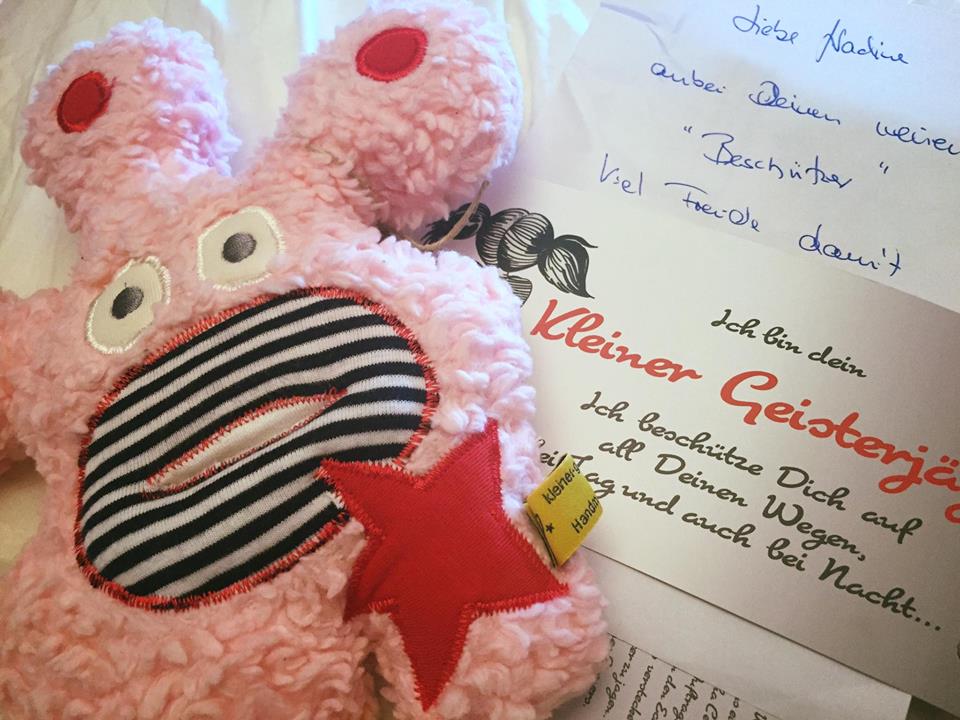 Liebe Nadine
anbei Deinen
"Beschützer"
Viel Freude damit
Ich bin dein
Kleiner Geisterjä
Ich beschütze Dich auf
all Deinen Wegen,
bei Tag und auch bei Nacht...
Kleiner
Handm